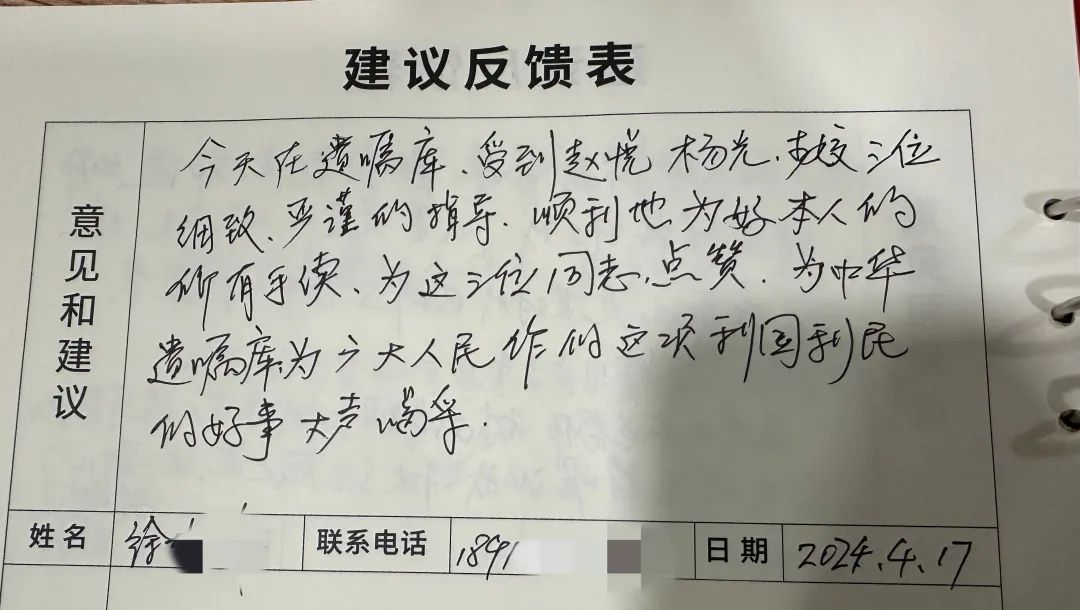 建议反馈表
意见和建议
今天在遗嘱库、受到赵悦 杨光、三位
细致、严谨的指导、顺利地为好本人的
所有手续、为这三位同志点赞、为中华
遗嘱库为广大人民作的这项利国利民
的好事大声喝采.
姓名 徐 联系电话 1891 日期 2024.4.17